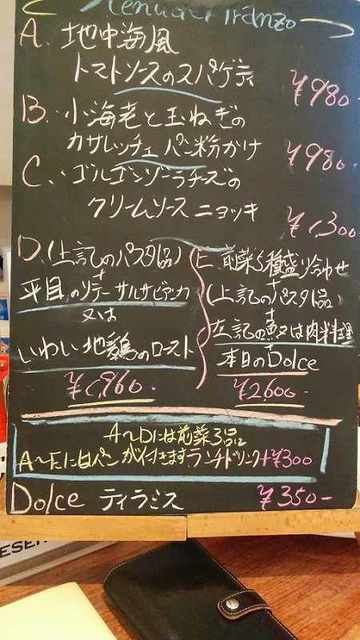 Menu del Pranzo
A. 地中海風
トマトソースのスパゲティ ¥980-
B. 小海老と玉ねぎの
カサレッチェ パン粉がけ ¥980-
C. ゴルゴンゾーラチーズの
クリームソース ニョッキ ¥1,300
D. (上記のパスタ1品)
+
平目のソテー サルサビアンカ
又は
いわい地鶏のロースト
¥1,960-
E. 前菜5種盛り合わせ
+
(上記のパスタ1品)
+
左記の魚又は肉料理
本日のDolce
¥2600-
A〜Dには前菜3品と
A〜Eにはパンが付きます。ランチドリンク+¥300
Dolce ティラミス ¥350-